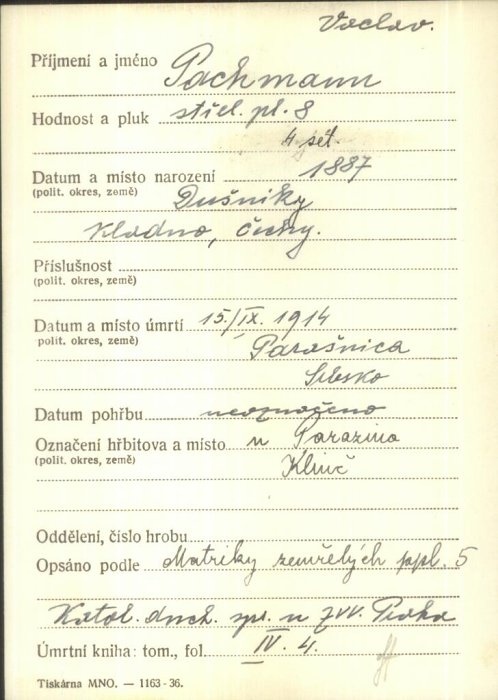 Vaclav.
Příjmení a jméno Pachmann
Hodnost a pluk střel. pl. 8
4 set.
Datum a místo narození 1887
(polit. okres, země) Dušníky
Kladno, Čechy.
Příslušnost
(polit. okres, země)
Datum a místo úmrtí 15./IX. 1914
polit. okres, země) Parašnica
Srbsko
Datum pohřbu neoznačeno
Označení hřbitova a místo u Parazina
(polit. okres, země) Klinč
Oddělení, číslo hrobu
Opsáno podle Matriky zemřelých ppl. 5
Katol. duch. spr. u ZVV. Praha
Úmrtní kniha: tom., fol. IV. 4.
Tiskárna MNO. — 1163-36.